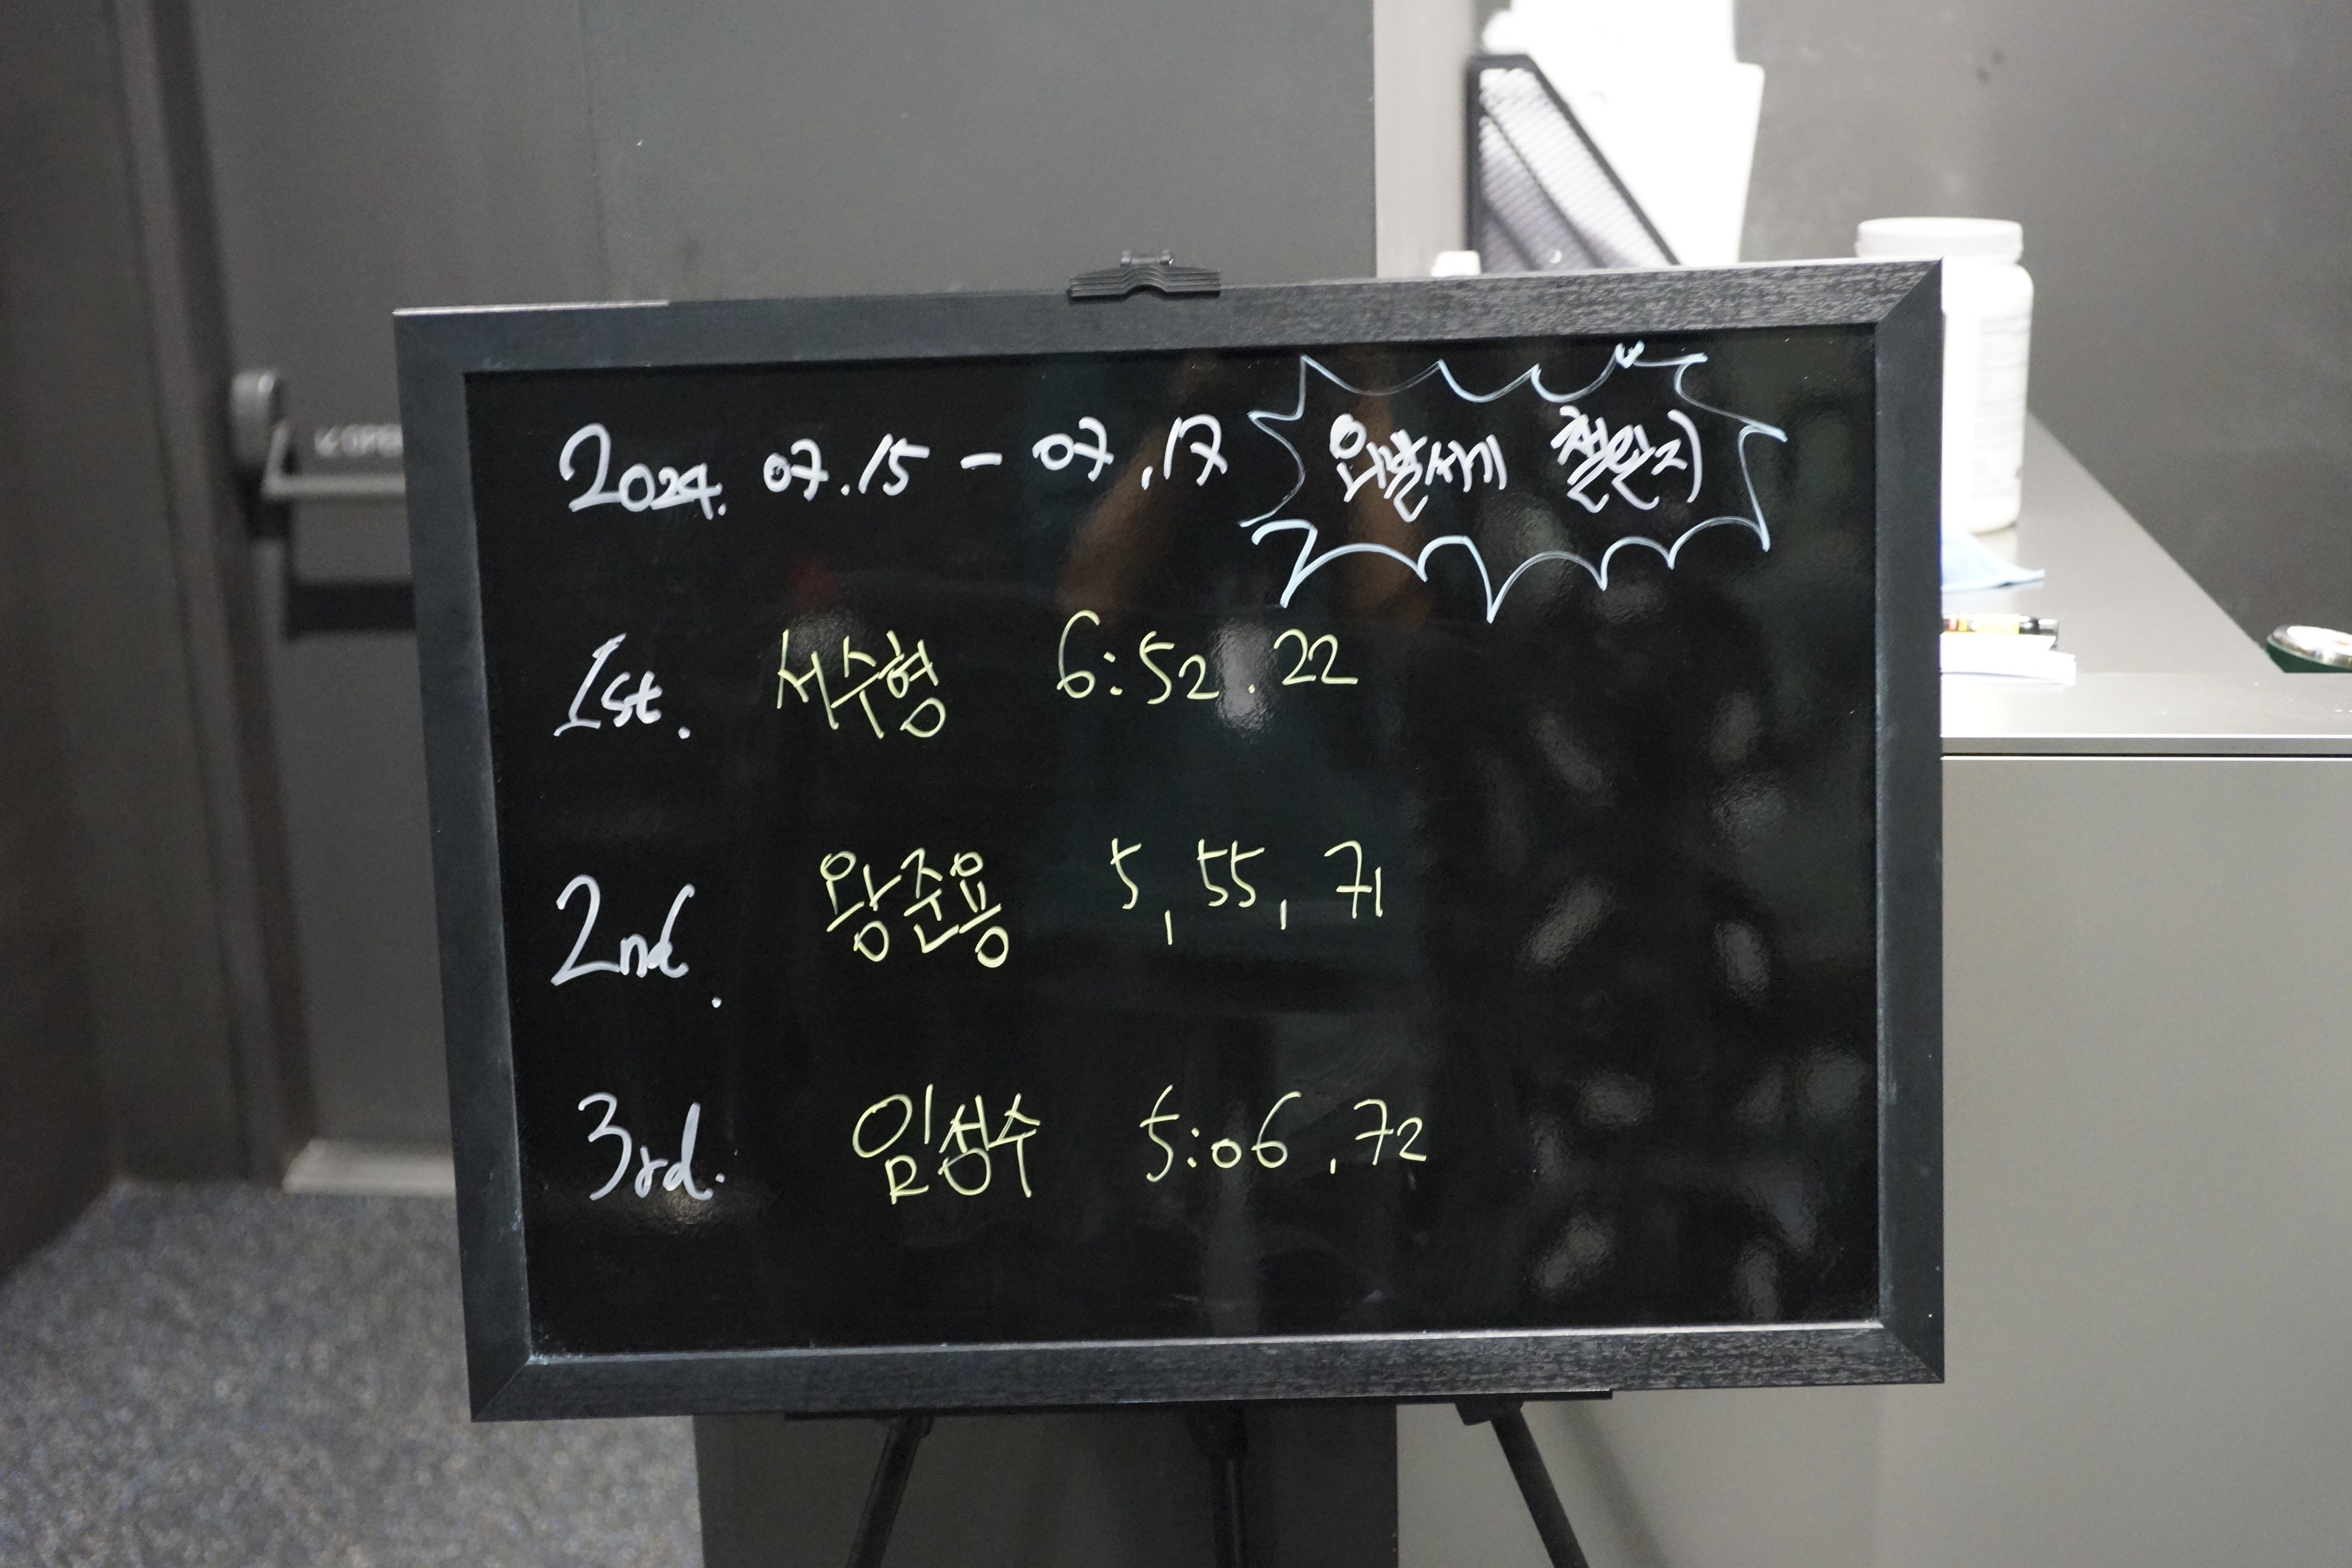 2024. 07.15 - 07.17 외발서기 챌린지
1st. 서수형 6:52.22
2nd. 왕준용 5,55,71
3rd. 임성수 5:06.72
OPEN